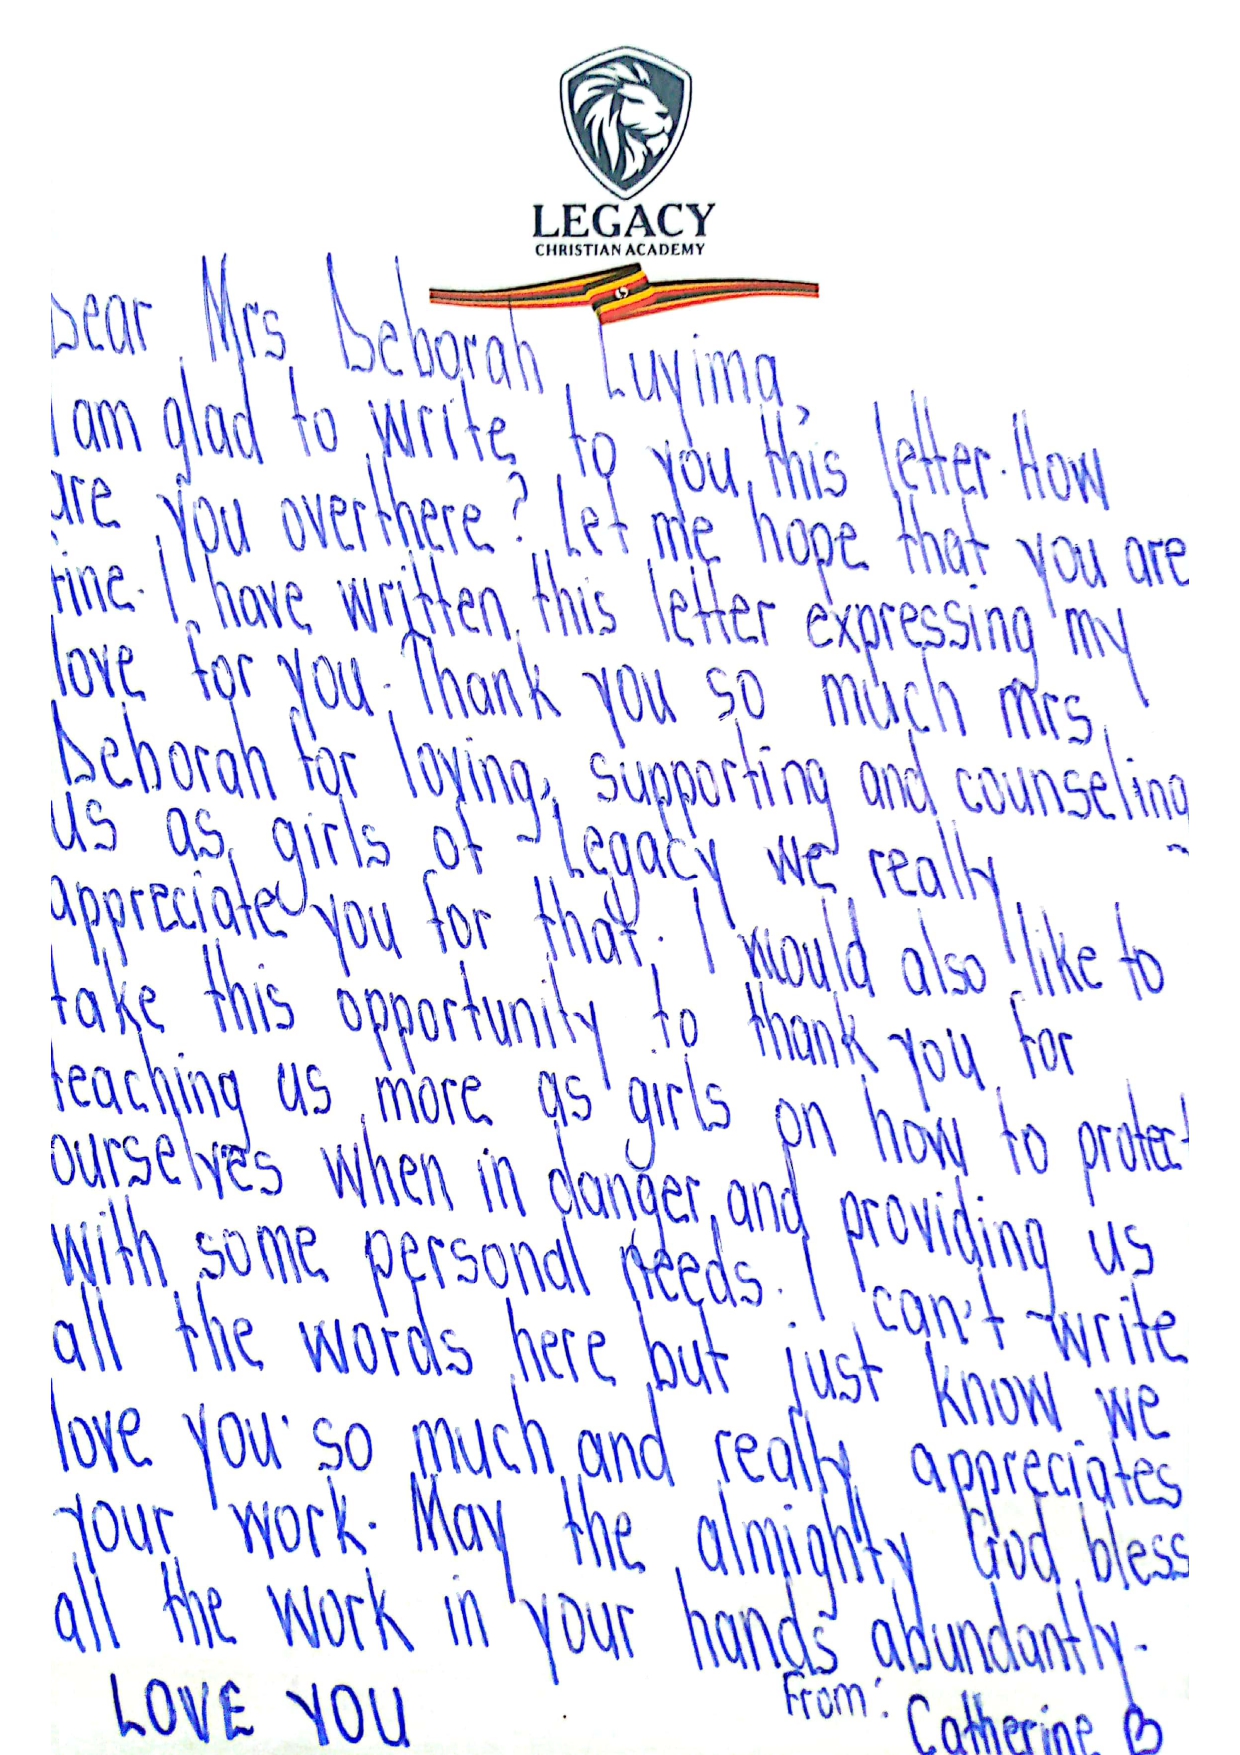 LEGACY
CHRISTIAN ACADEMY
Dear Mrs Deborah Luyima,
I am glad to write to you this letter. How
are you overthere? Let me hope that you are
fine. I have written this letter expressing my
love for you. Thank you so much mrs
Deborah for loving, supporting and counseling
us as girls of Legacy we really
appreciate you for that. I would also like to
take this opportunity to thank you for
teaching us more as girls on how to protect
ourselves when in danger and providing us
with some personal needs. I can't write
all the words here but just know we
love you so much and really appreciates
your work. May the almighty God bless
all the work in your hands abundantly.
LOVE YOU
From:
Catherine B